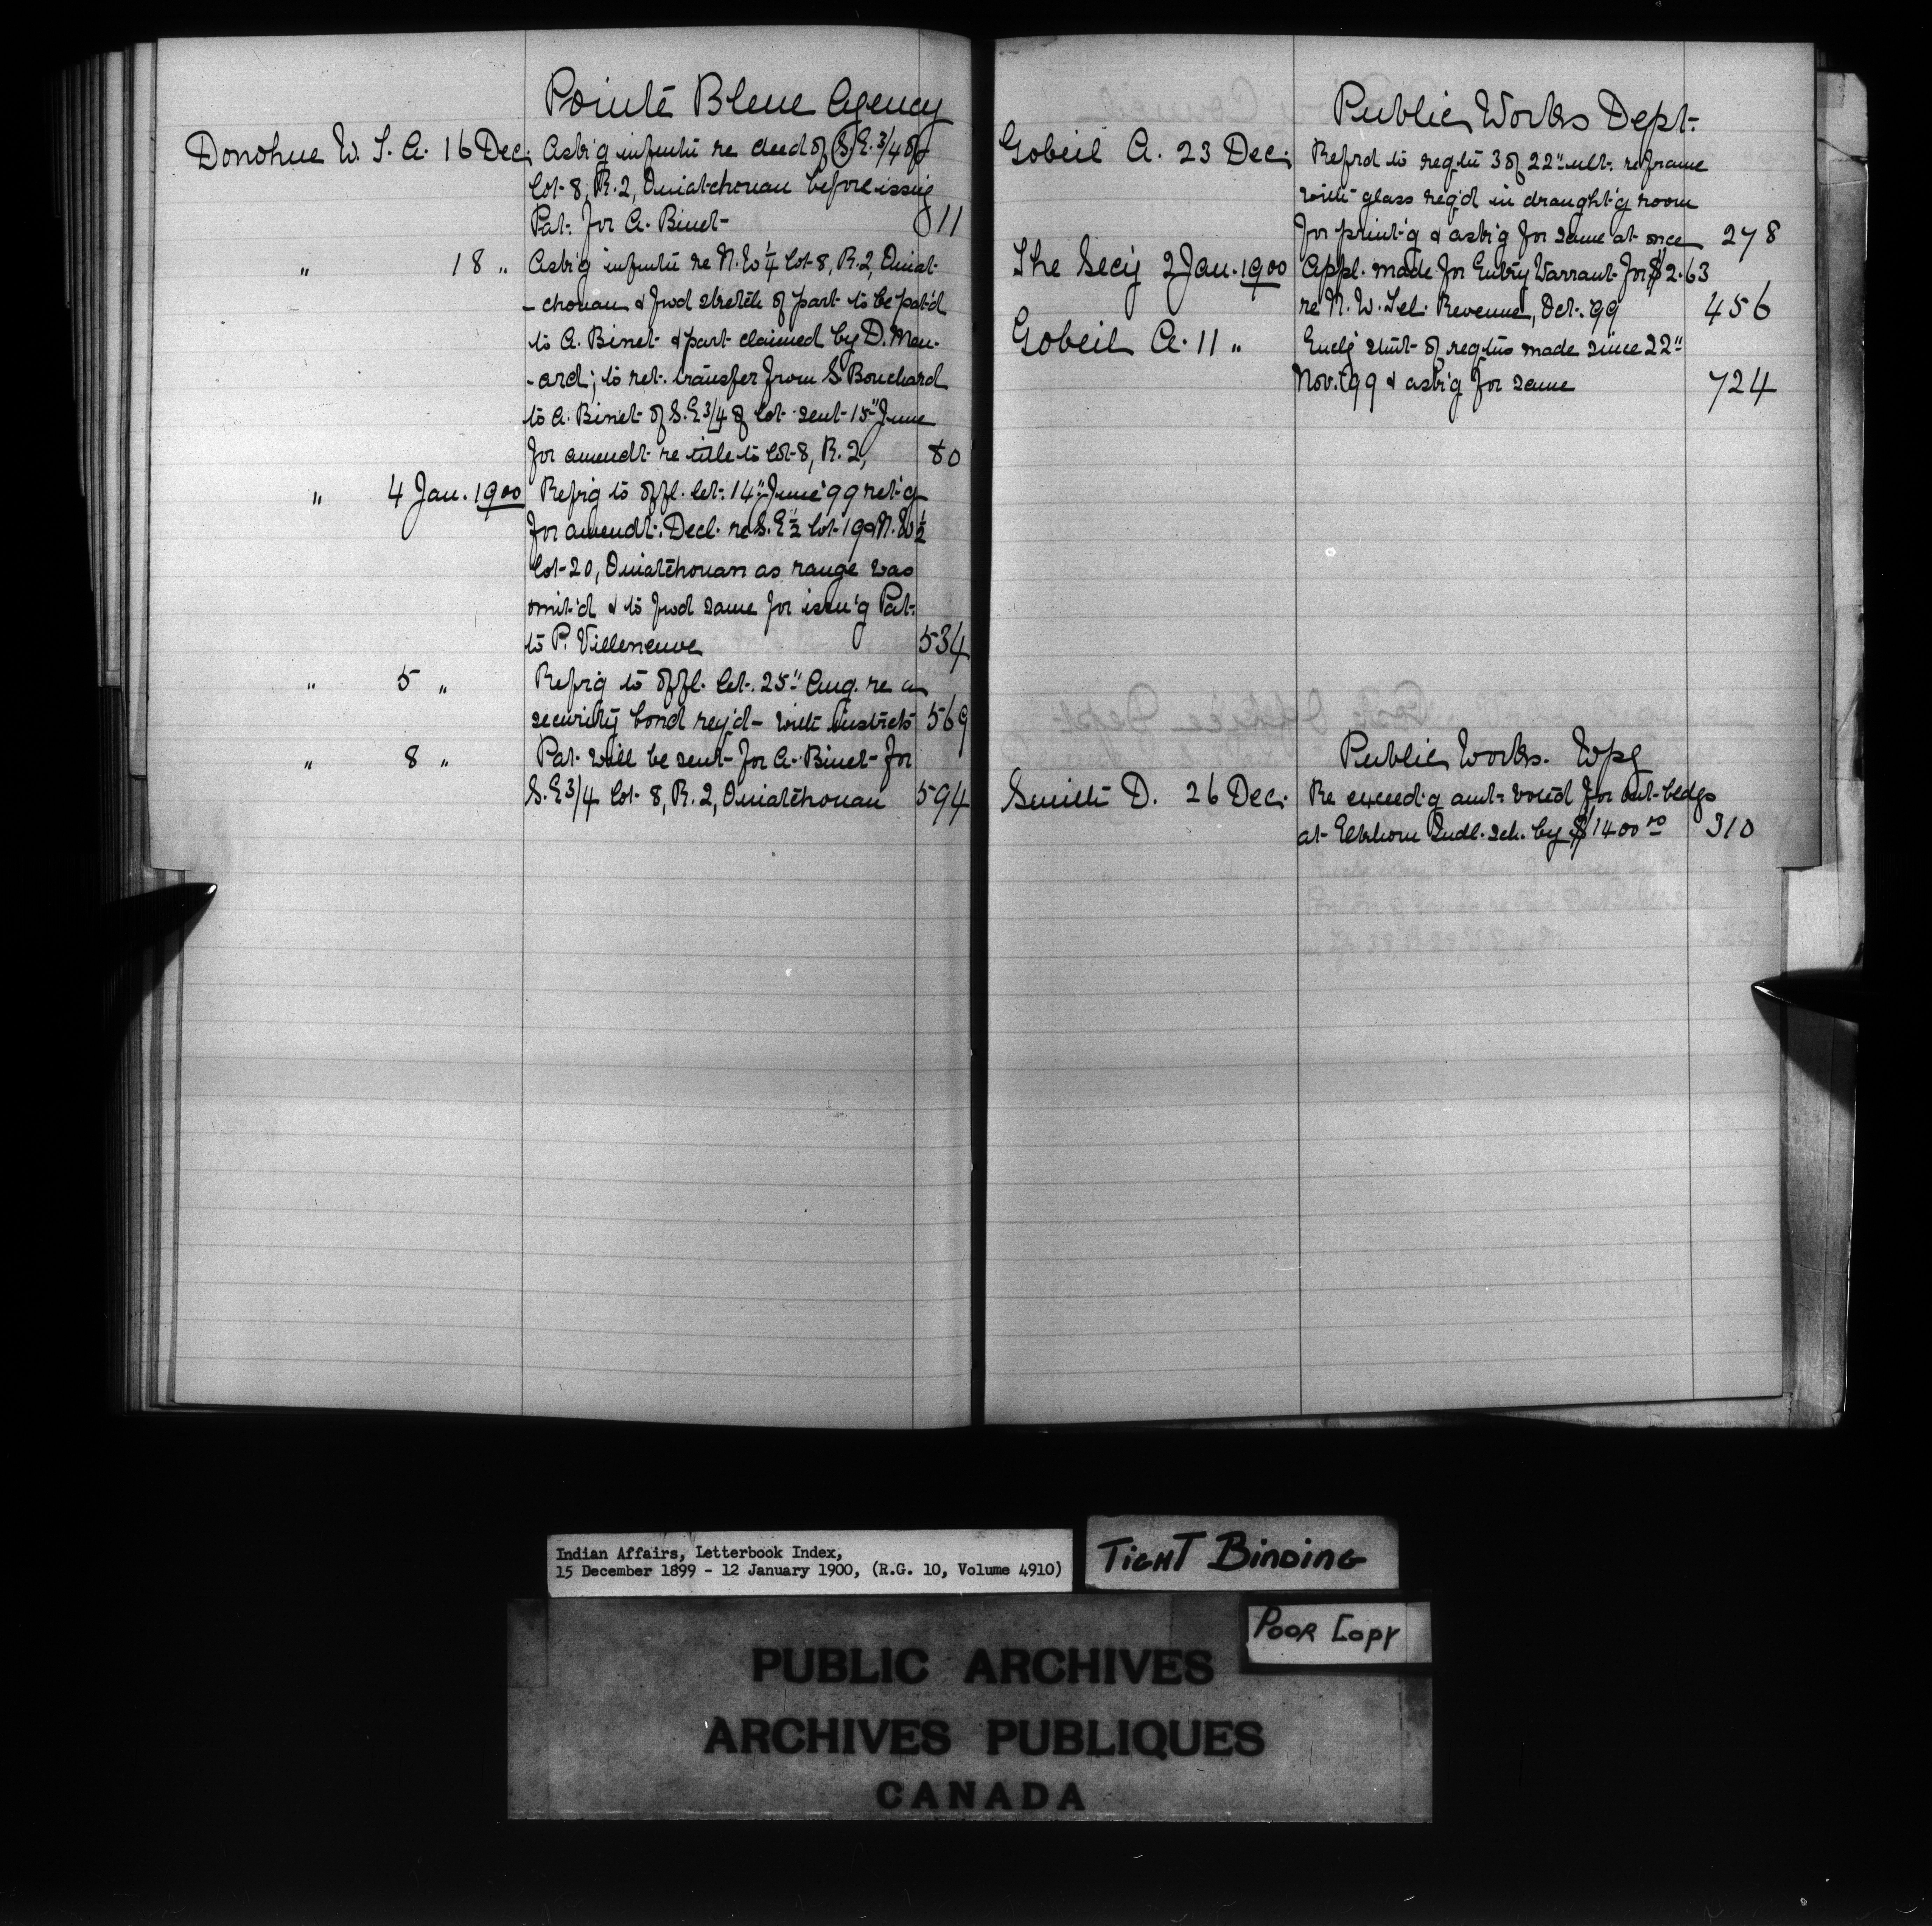 Pointe Bleue Agency
Donohue W. T. A. 16 Dec. Ask'g infmtn re deed of S.E. 3/4 of
Lot 8, R. 2, Ouiatchouan before issuig
Pat. for A. Binet 11
" 18 " Ask'g infmtn re N.W ¼ Lot 8, R. 2, Ouiat-
-chouan & fwd sketch of part to be pat'd
to A. Binet & part claimed by D. Men-
-ard; to ret. transfer from S Bouchard
to A. Binet of S.E 3/4 of Lot sent 15" June
for amendt re title to Lot 8, R. 2, 80
" 4 Jan. 1900 Refrig to offl. let. 14" June '99 ret'g
for amendt. Decl. re S. E ½ Lot 19 & N. W ½
Lot 20, Ouiatchouan as range was
omit'd & to fwd same for issu'g Pat.
to P. Villeneuve 534
" 5 " Refrig to offl. let. 25" Aug. re
security bond req'd - with instrcts 569
" 8 " Pat. will be sent for A. Binet for
S. E 3/4 Lot 8, R. 2, Ouiatchouan 594
Public Works Dept.
Gobeil A. 23 Dec. Refrd to reqtn 3 of 22" ult. re frame
with glass req'd in draught'g room
for print'g & ask'g for same at once 278
The Secy 2 Jan. 1900 Appl. made for Entry Warrant for $2.63
re N. W. Tel. Revenue, Oct. 99 456
Gobeil A. 11 " Enclg stmt of reqtns made since 22"
Nov. '99 & ask'g for same 724
Public Works. Wpg
Smith D. 26 Dec. Re exceed'g amt voted for out-bldgs
at Elkhorn Indl. sch. by $1400 00 310
Indian Affairs, Letterbook Index,
15 December 1899 - 12 January 1900, (R.G. 10, Volume 4910)
TIGHT BINDING
POOR COPY
PUBLIC ARCHIVES
ARCHIVES PUBLIQUES
CANADA